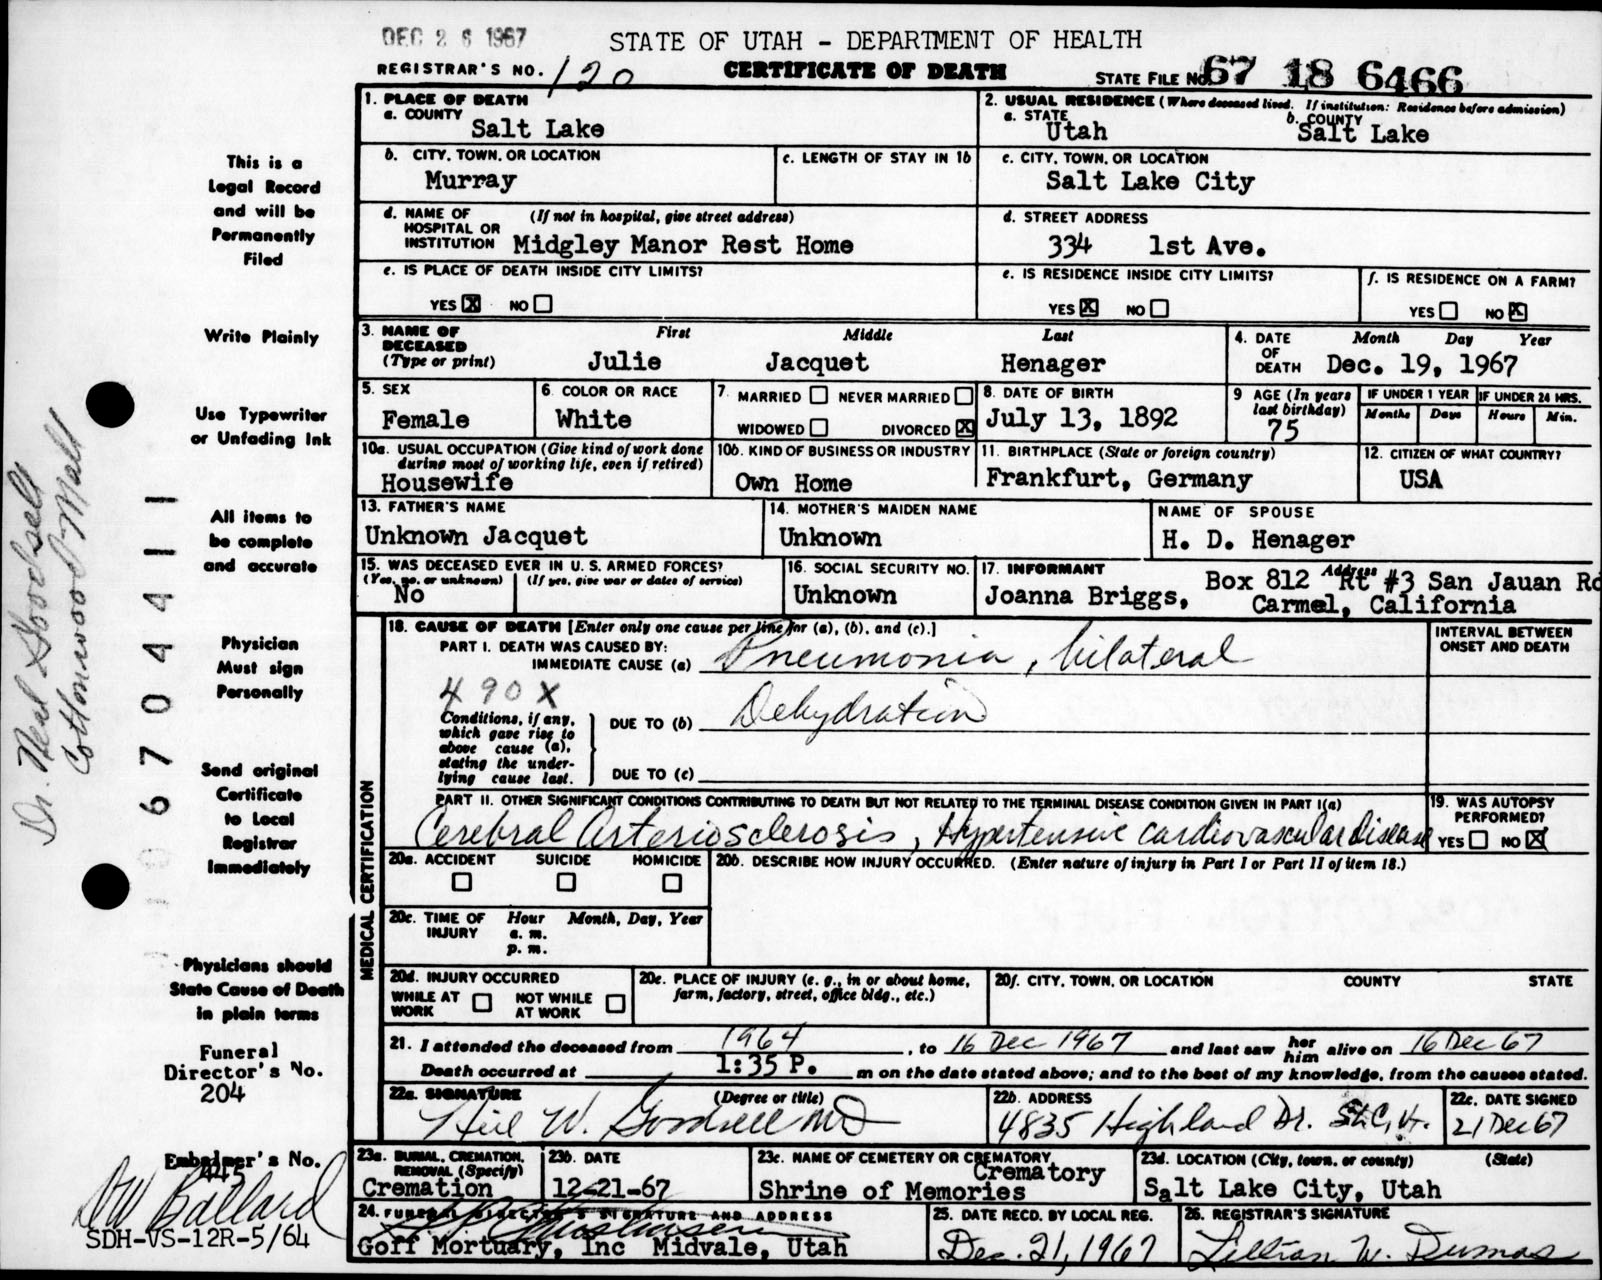 DEC 26 1967
STATE OF UTAH - DEPARTMENT OF HEALTH
REGISTRAR'S NO. 120
CERTIFICATE OF DEATH
STATE FILE NO. 67 18 6466
1. PLACE OF DEATH
a. COUNTY
Salt Lake
2. USUAL RESIDENCE (Where deceased lived. If institution: Residence before admission)
a. STATE
Utah
b. COUNTY
Salt Lake
b. CITY, TOWN, OR LOCATION
Murray
c. LENGTH OF STAY IN 1b
c. CITY, TOWN, OR LOCATION
Salt Lake City
d. NAME OF HOSPITAL OR INSTITUTION
(If not in hospital, give street address)
Midgley Manor Rest Home
d. STREET ADDRESS
334 1st Ave.
e. IS PLACE OF DEATH INSIDE CITY LIMITS?
YES X NO
e. IS RESIDENCE INSIDE CITY LIMITS?
YES X NO
f. IS RESIDENCE ON A FARM?
YES NO X
3. NAME OF DECEASED
(Type or print)
First Middle Last
Julie Jacquet Henager
4. DATE OF DEATH
Month Day Year
Dec. 19, 1967
5. SEX
Female
6. COLOR OR RACE
White
7. MARRIED NEVER MARRIED
WIDOWED DIVORCED X
8. DATE OF BIRTH
July 13, 1892
9 AGE (In years last birthday)
75
IF UNDER 1 YEAR
Months Days
IF UNDER 24 HRS.
Hours Min.
10a. USUAL OCCUPATION (Give kind of work done during most of working life, even if retired)
Housewife
10b. KIND OF BUSINESS OR INDUSTRY
Own Home
11. BIRTHPLACE (State or foreign country)
Frankfurt, Germany
12. CITIZEN OF WHAT COUNTRY?
USA
13. FATHER'S NAME
Unknown Jacquet
14. MOTHER'S MAIDEN NAME
Unknown
NAME OF SPOUSE
H. D. Henager
15. WAS DECEASED EVER IN U. S. ARMED FORCES?
(Yes, no, or unknown) (If yes, give war or dates of service)
No
16. SOCIAL SECURITY NO.
Unknown
17. INFORMANT
Address
Joanna Briggs, Box 812 Rt #3 San Jauan Rd
Carmel, California
18. CAUSE OF DEATH [Enter only one cause per line for (a), (b), and (c).]
PART I. DEATH WAS CAUSED BY:
IMMEDIATE CAUSE (a) Pneumonia, bilateral
490X
Conditions, if any, which gave rise to above cause (a), stating the underlying cause last.
DUE TO (b) Dehydration
DUE TO (c)
INTERVAL BETWEEN ONSET AND DEATH
PART II. OTHER SIGNIFICANT CONDITIONS CONTRIBUTING TO DEATH BUT NOT RELATED TO THE TERMINAL DISEASE CONDITION GIVEN IN PART I(a)
Cerebral Arteriosclerosis, Hypertensive cardiovascular disease
19. WAS AUTOPSY PERFORMED?
YES NO X
20a. ACCIDENT SUICIDE HOMICIDE
20b. DESCRIBE HOW INJURY OCCURRED. (Enter nature of injury in Part I or Part II of item 18.)
20c. TIME OF INJURY
Hour Month, Day, Year
a. m.
p. m.
20d. INJURY OCCURRED
WHILE AT WORK NOT WHILE AT WORK
20e. PLACE OF INJURY (e. g., in or about home, farm, factory, street, office bldg., etc.)
20f. CITY, TOWN, OR LOCATION COUNTY STATE
21. I attended the deceased from 1964, to 16 Dec 1967 and last saw her him alive on 16 Dec 67
Death occurred at 1:35 P. m on the date stated above; and to the best of my knowledge, from the causes stated.
22a. SIGNATURE (Degree or title)
Neil W. Goodsell MD
22b. ADDRESS
4835 Highland Dr.
22c. DATE SIGNED
21 Dec 67
23a. BURIAL, CREMATION, REMOVAL (Specify)
Cremation
23b. DATE
12-21-67
23c. NAME OF CEMETERY OR CREMATORY
Crematory
Shrine of Memories
23d. LOCATION (City, town, or county) (State)
Salt Lake City, Utah
24. FUNERAL DIRECTOR'S SIGNATURE AND ADDRESS
Goff Mortuary, Inc Midvale, Utah
25. DATE RECD. BY LOCAL REG.
Dec. 21, 1967
26. REGISTRAR'S SIGNATURE
Lillian W. Dumas
MEDICAL CERTIFICATION
This is a
Legal Record
and will be
Permanently
Filed
Write Plainly
Use Typewriter
or Unfading Ink
All items to
be complete
and accurate
Physician
Must sign
Personally
Send original
Certificate
to Local
Registrar
Immediately
Physicians should
State Cause of Death
in plain terms
Funeral
Director's No.
204
Embalmer's No.
445
DW Ballard
SDH-VS-12R-5/64
Dr. Neal Goodsell
Cottonwood Mall
670441